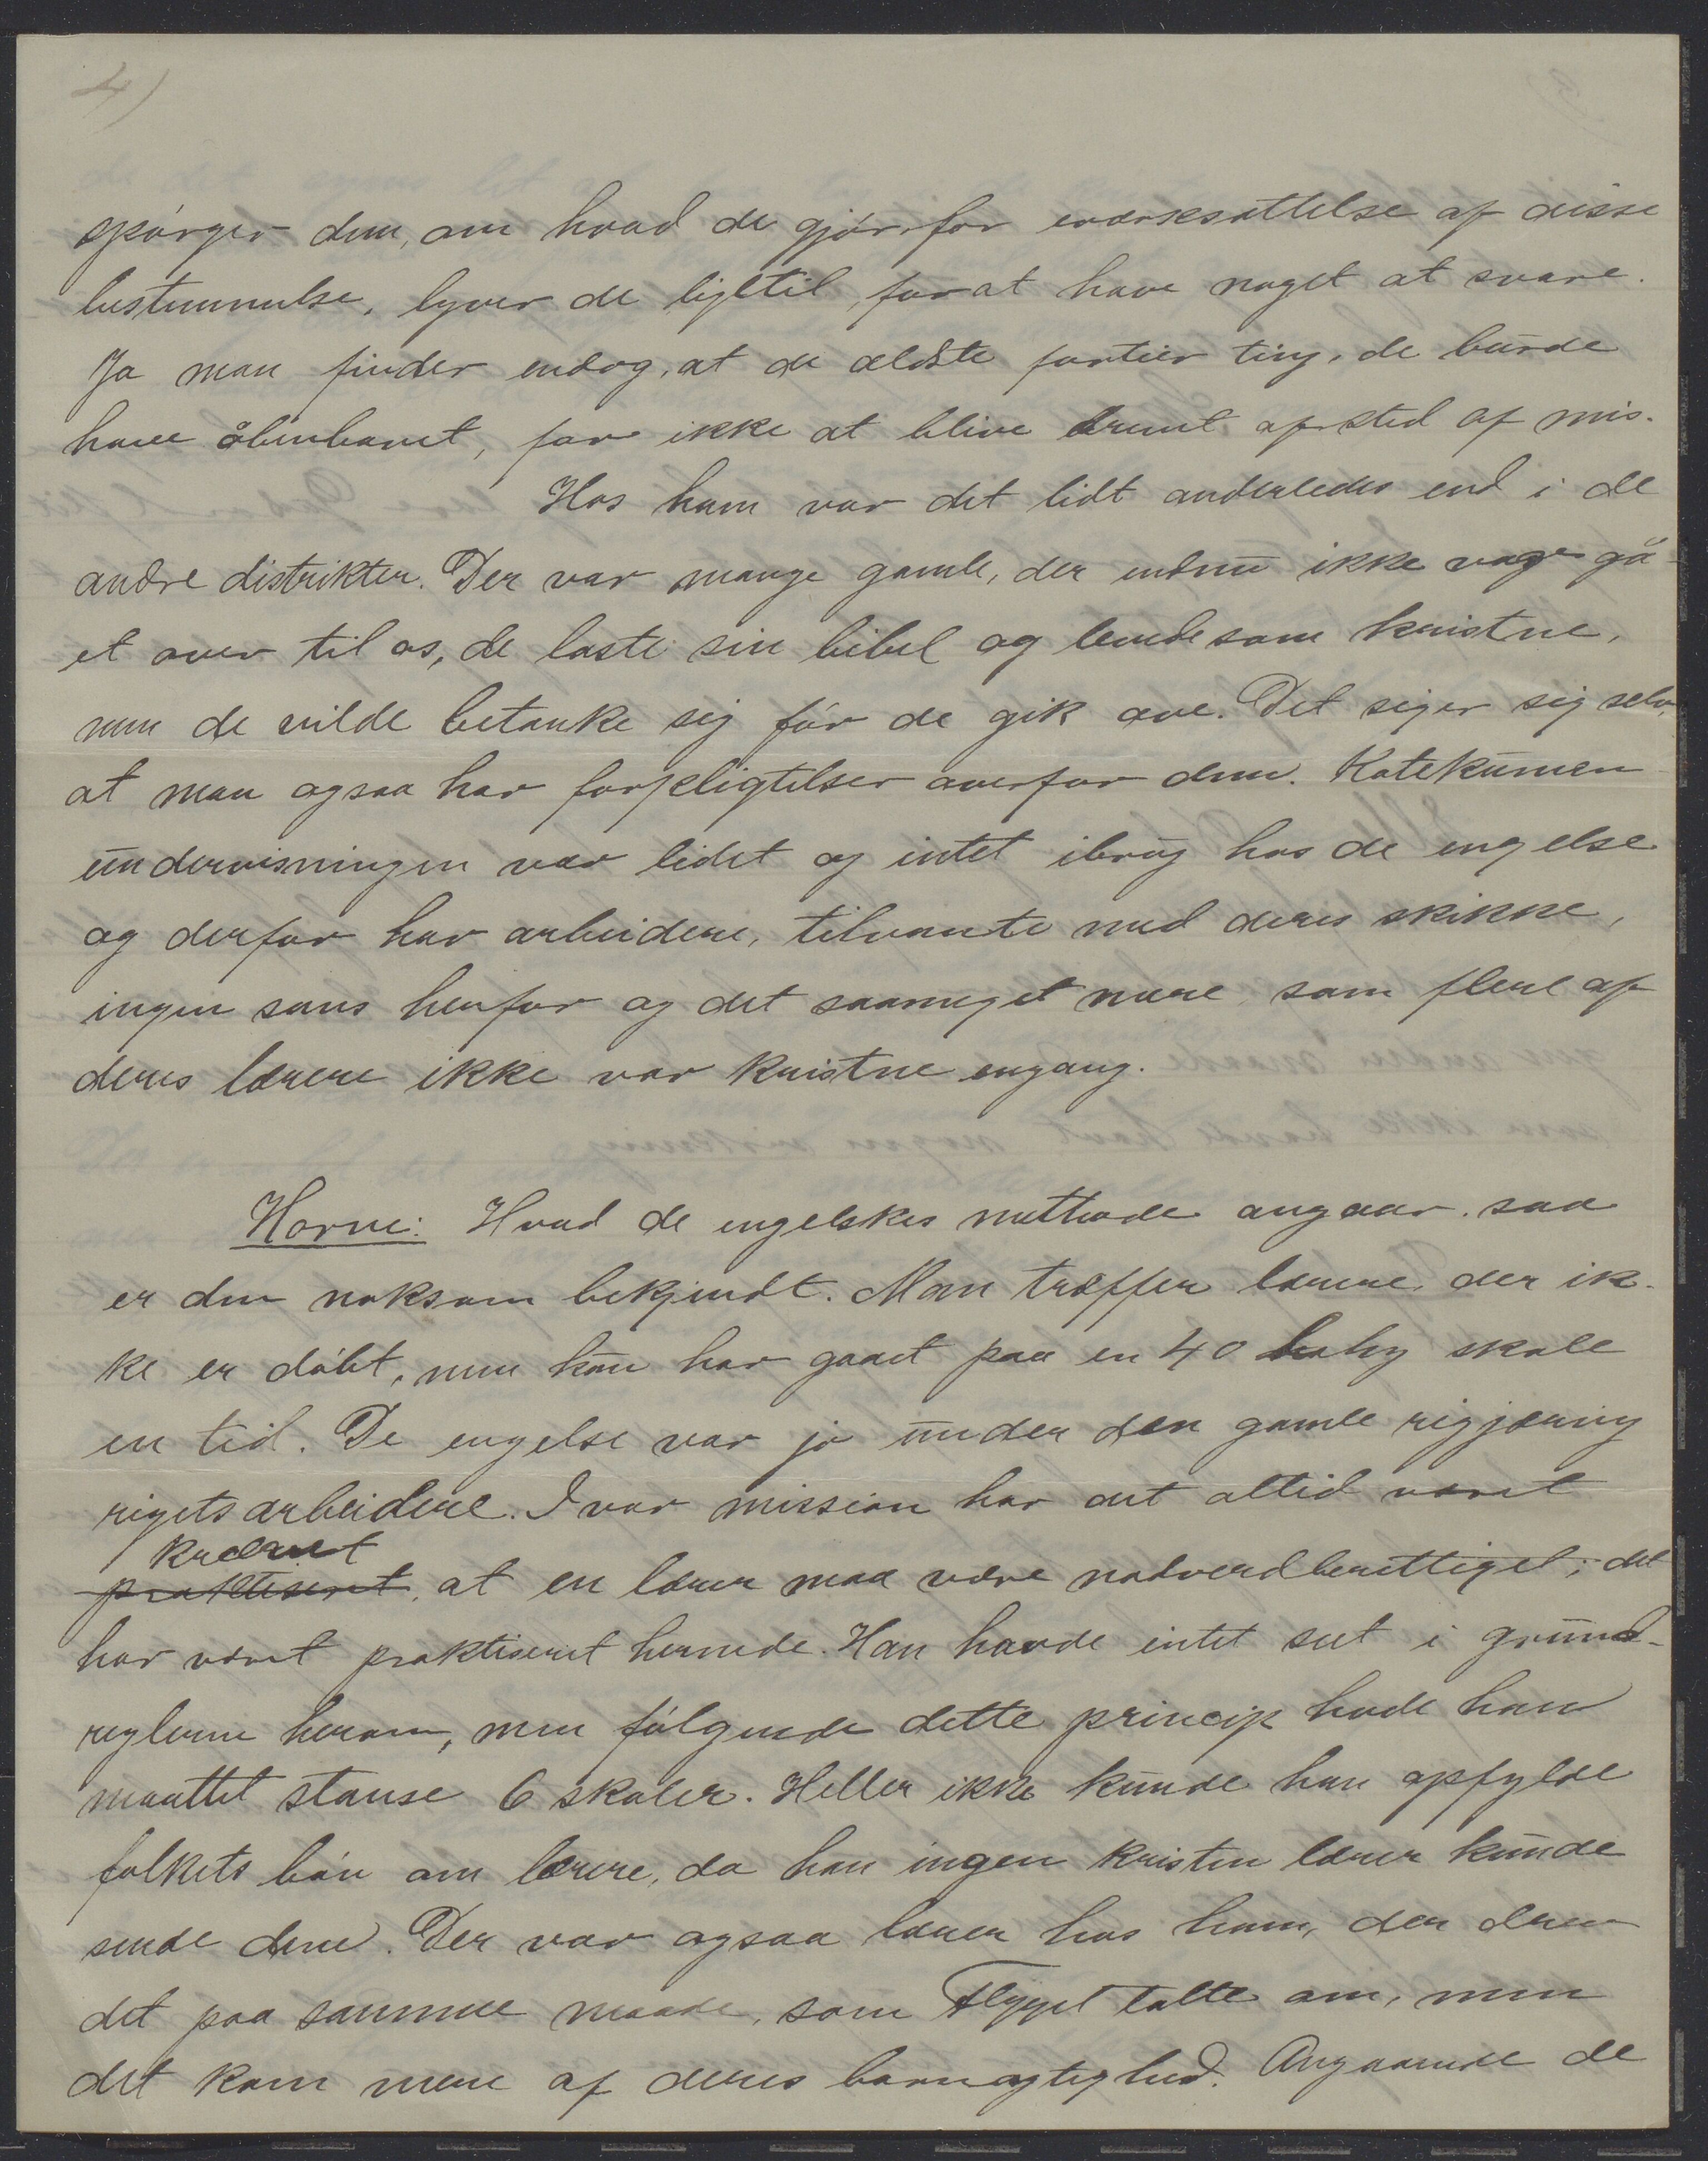 4)
spörger dem, om hvad de gjör for iværksættelse af disse
bestemmelse, lyver de ligetil, for at have noget at svare.
Ja man finder endog, at de ældste fortier ting, de burde
have åbenbaret, for ikke at blive drevet afsted af mis.
Hos ham var det lidt anderledes end i de
andre distrikter. Der var mange gamle, der endnu ikke var gå-
et over til os, de læste sin bibel og levede som kristne,
men de vilde betænke sig för de gik over. Det siger sig selv,
at man ogsaa har forpligtelser overfor dem. Katekumen
undervisningen var lidet og intet ibrug hos de engelske
og derfor har arbeidere, tilvante med deres skikke,
ingen sans herfor og det saameget mere, som flere af
deres lærere ikke var kristne engang.
Horne: Hvad de engelskes methode angaar, saa
er den noksom bekjendt. Man træffer lærere, der ik-
ke er döbt, men kun har gaaet paa en 40 baby skole
en tid. De engelske var jo under den gamle regjæring
rigets arbeidere. I vor mission har det altid været
krævet
praktiseret, at en lærer maa være nadverdberettiget; det
har været praktiseret hernede. Han havde intet seet i grund-
reglerne herom, men fölgende dette princip havde han
maattet stanse 6 skoler. Heller ikke kunde han opfylde
folkets bön om lærere, da han ingen kristen lærer kunde
sende dem. Der var ogsaa lærer hos ham, der drev
det paa samme maade, som Flygel talte om, men
det kom mere af deres barnagtighed. Angaaende de